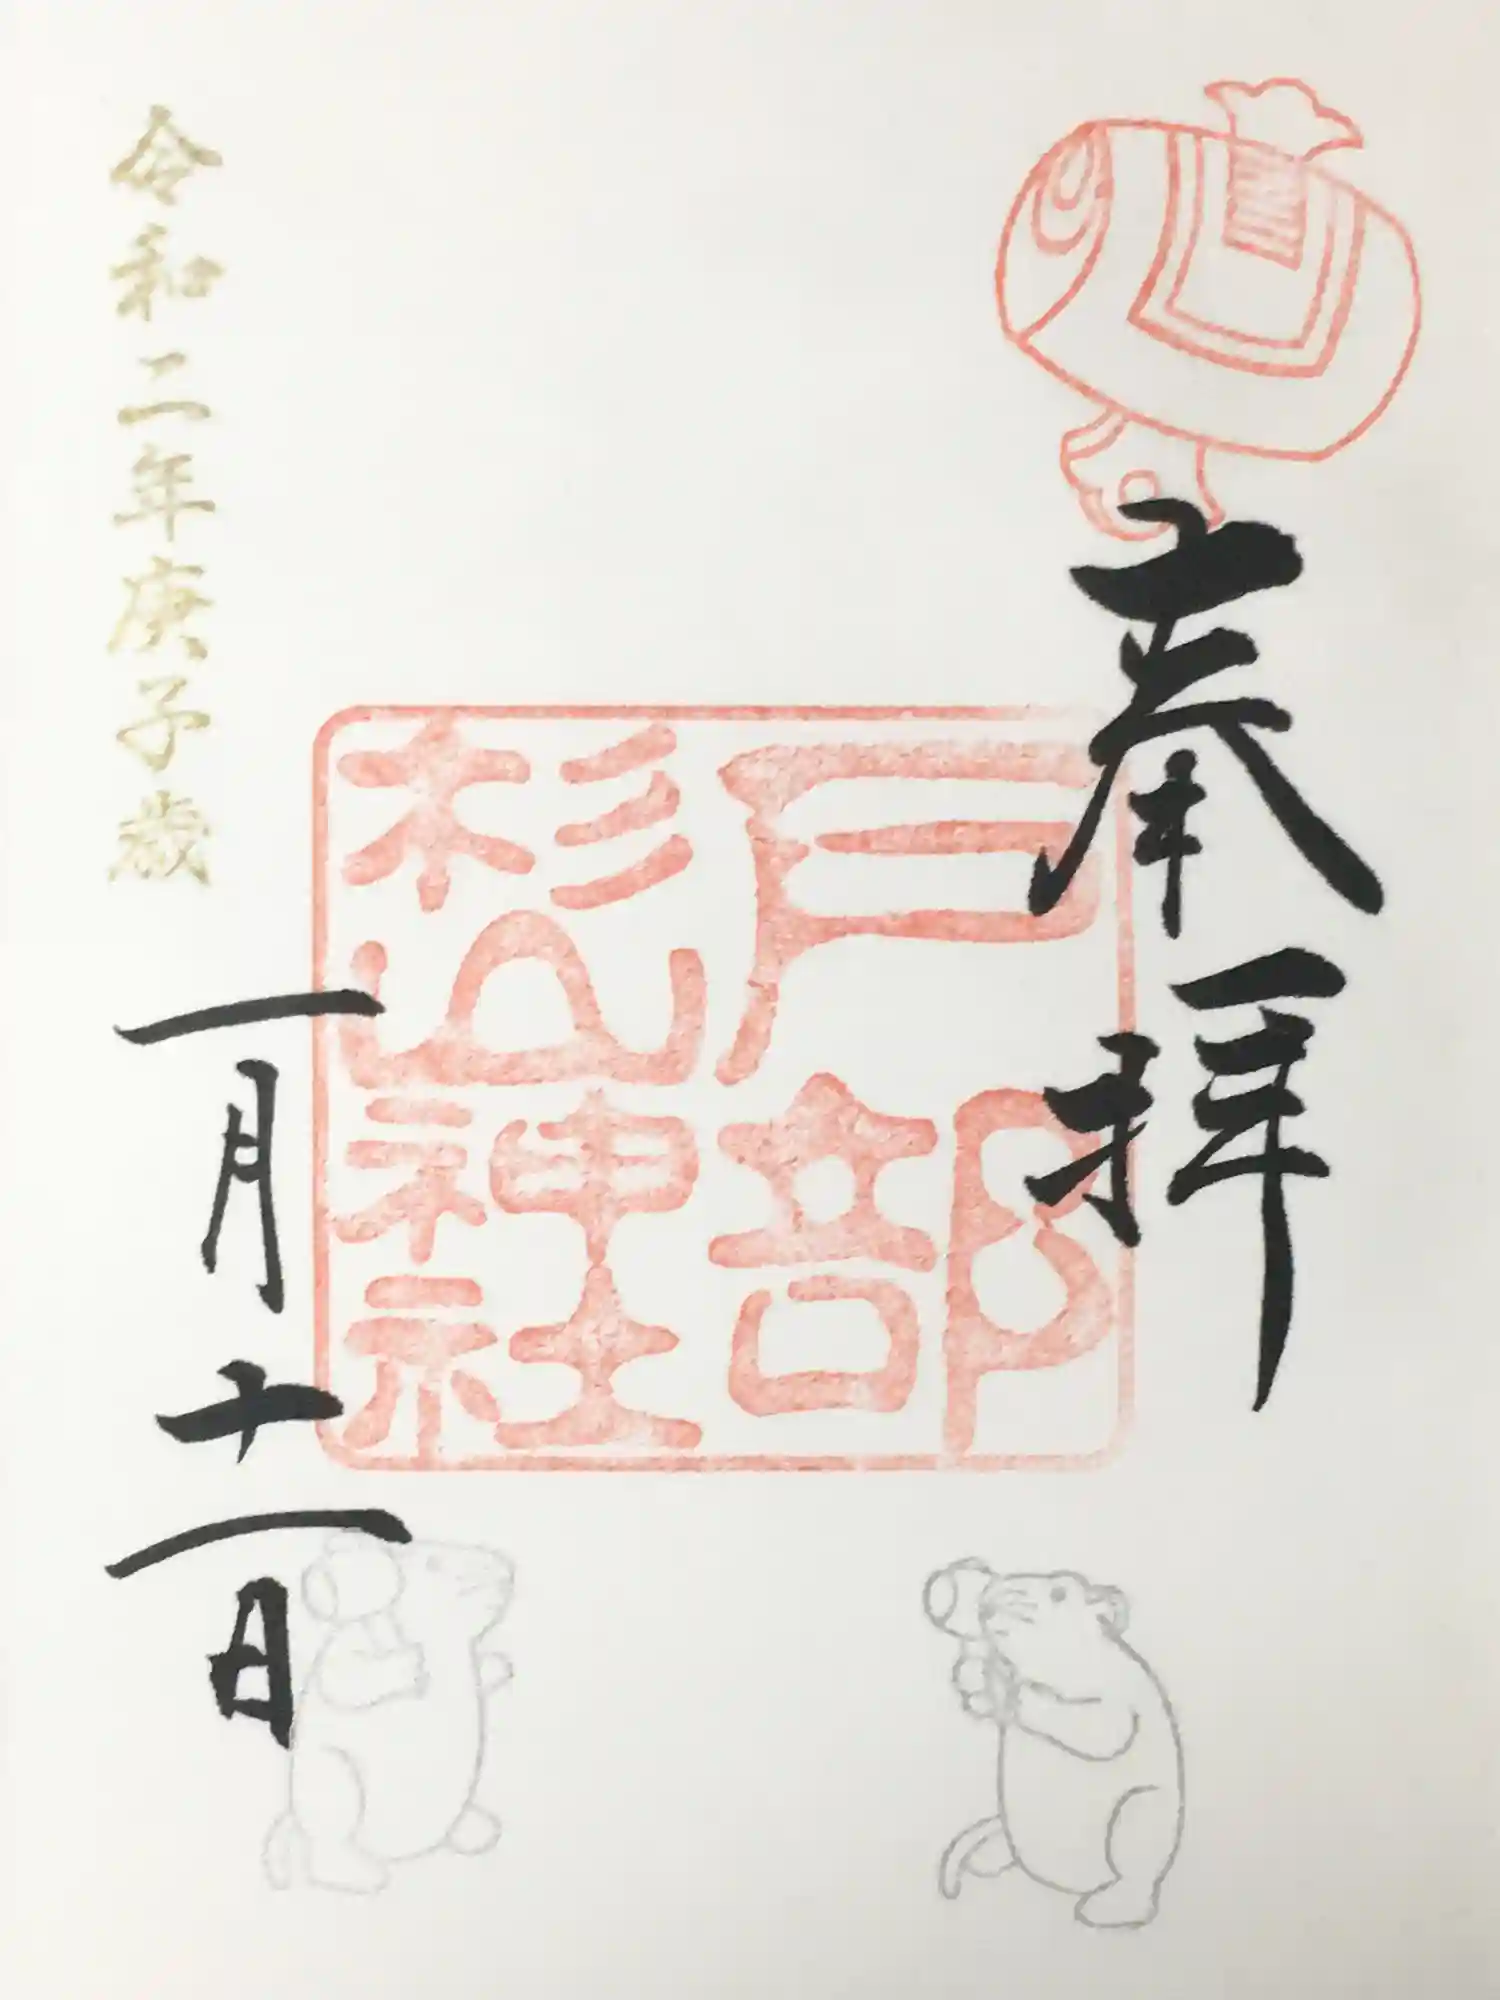 奉拝
戸部
杉山
神社
令和二年庚子歳
一月十一日